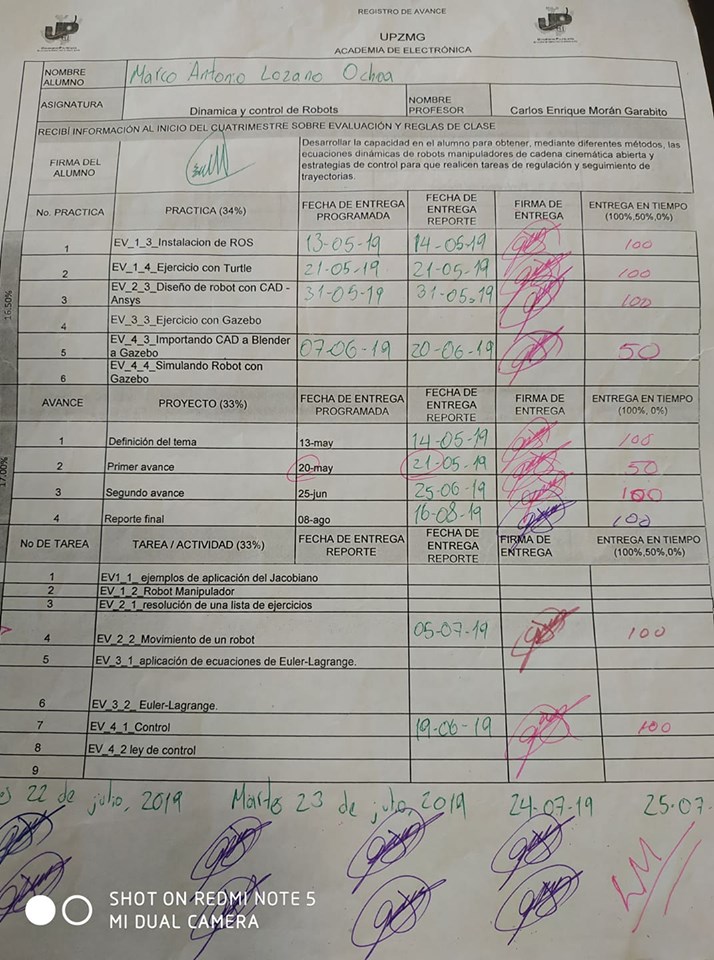 REGISTRO DE AVANCE
UPZMG
ACADEMIA DE ELECTRÓNICA
NOMBRE ALUMNO Marco Antonio Lozano Ochoa
ASIGNATURA Dinamica y control de Robots NOMBRE PROFESOR Carlos Enrique Morán Garabito
RECIBÍ INFORMACIÓN AL INICIO DEL CUATRIMESTRE SOBRE EVALUACIÓN Y REGLAS DE CLASE
FIRMA DEL ALUMNO
Desarrollar la capacidad en el alumno para obtener, mediante diferentes métodos, las
ecuaciones dinámicas de robots manipuladores de cadena cinemática abierta y
estrategias de control para que realicen tareas de regulación y seguimiento de
trayectorias.
No. PRACTICA PRACTICA (34%) FECHA DE ENTREGA PROGRAMADA FECHA DE ENTREGA REPORTE FIRMA DE ENTREGA ENTREGA EN TIEMPO (100%,50%,0%)
16.50%
1 EV_1_3_Instalacion de ROS 13-05-19 14-05-19 100
2 EV_1_4_Ejercicio con Turtle 21-05-19 21-05-19 100
3 EV_2_3_Diseño de robot con CAD - Ansys 31-05-19 31-05-19 100
4 EV_3_3_Ejercicio con Gazebo
5 EV_4_3_Importando CAD a Blender a Gazebo 07-06-19 20-06-19 50
6 EV_4_4_Simulando Robot con Gazebo
AVANCE PROYECTO (33%) FECHA DE ENTREGA PROGRAMADA FECHA DE ENTREGA REPORTE FIRMA DE ENTREGA ENTREGA EN TIEMPO (100%, 0%)
17.00%
1 Definición del tema 13-may 14-05-19 100
2 Primer avance 20-may 21-05-19 50
3 Segundo avance 25-jun 25-06-19 100
4 Reporte final 08-ago 16-08-19 100
No DE TAREA TAREA / ACTIVIDAD (33%) FECHA DE ENTREGA REPORTE FECHA DE ENTREGA REPORTE FIRMA DE ENTREGA ENTREGA EN TIEMPO (100%,50%,0%)
1 EV1_1_ ejemplos de aplicación del Jacobiano
2 EV_1_2_Robot Manipulador
3 EV_2_1_resolución de una lista de ejercicios
4 EV_2_2_Movimiento de un robot 05-07-19 100
5 EV_3_1_aplicación de ecuaciones de Euler-Lagrange.
6 EV_3_2_ Euler-Lagrange.
7 EV_4_1_Control 19-06-19 100
8 EV_4_2 ley de control
9
es 22 de julio, 2019 Martes 23 de julio, 2019 24-07-19 25-07-
SHOT ON REDMI NOTE 5
MI DUAL CAMERA